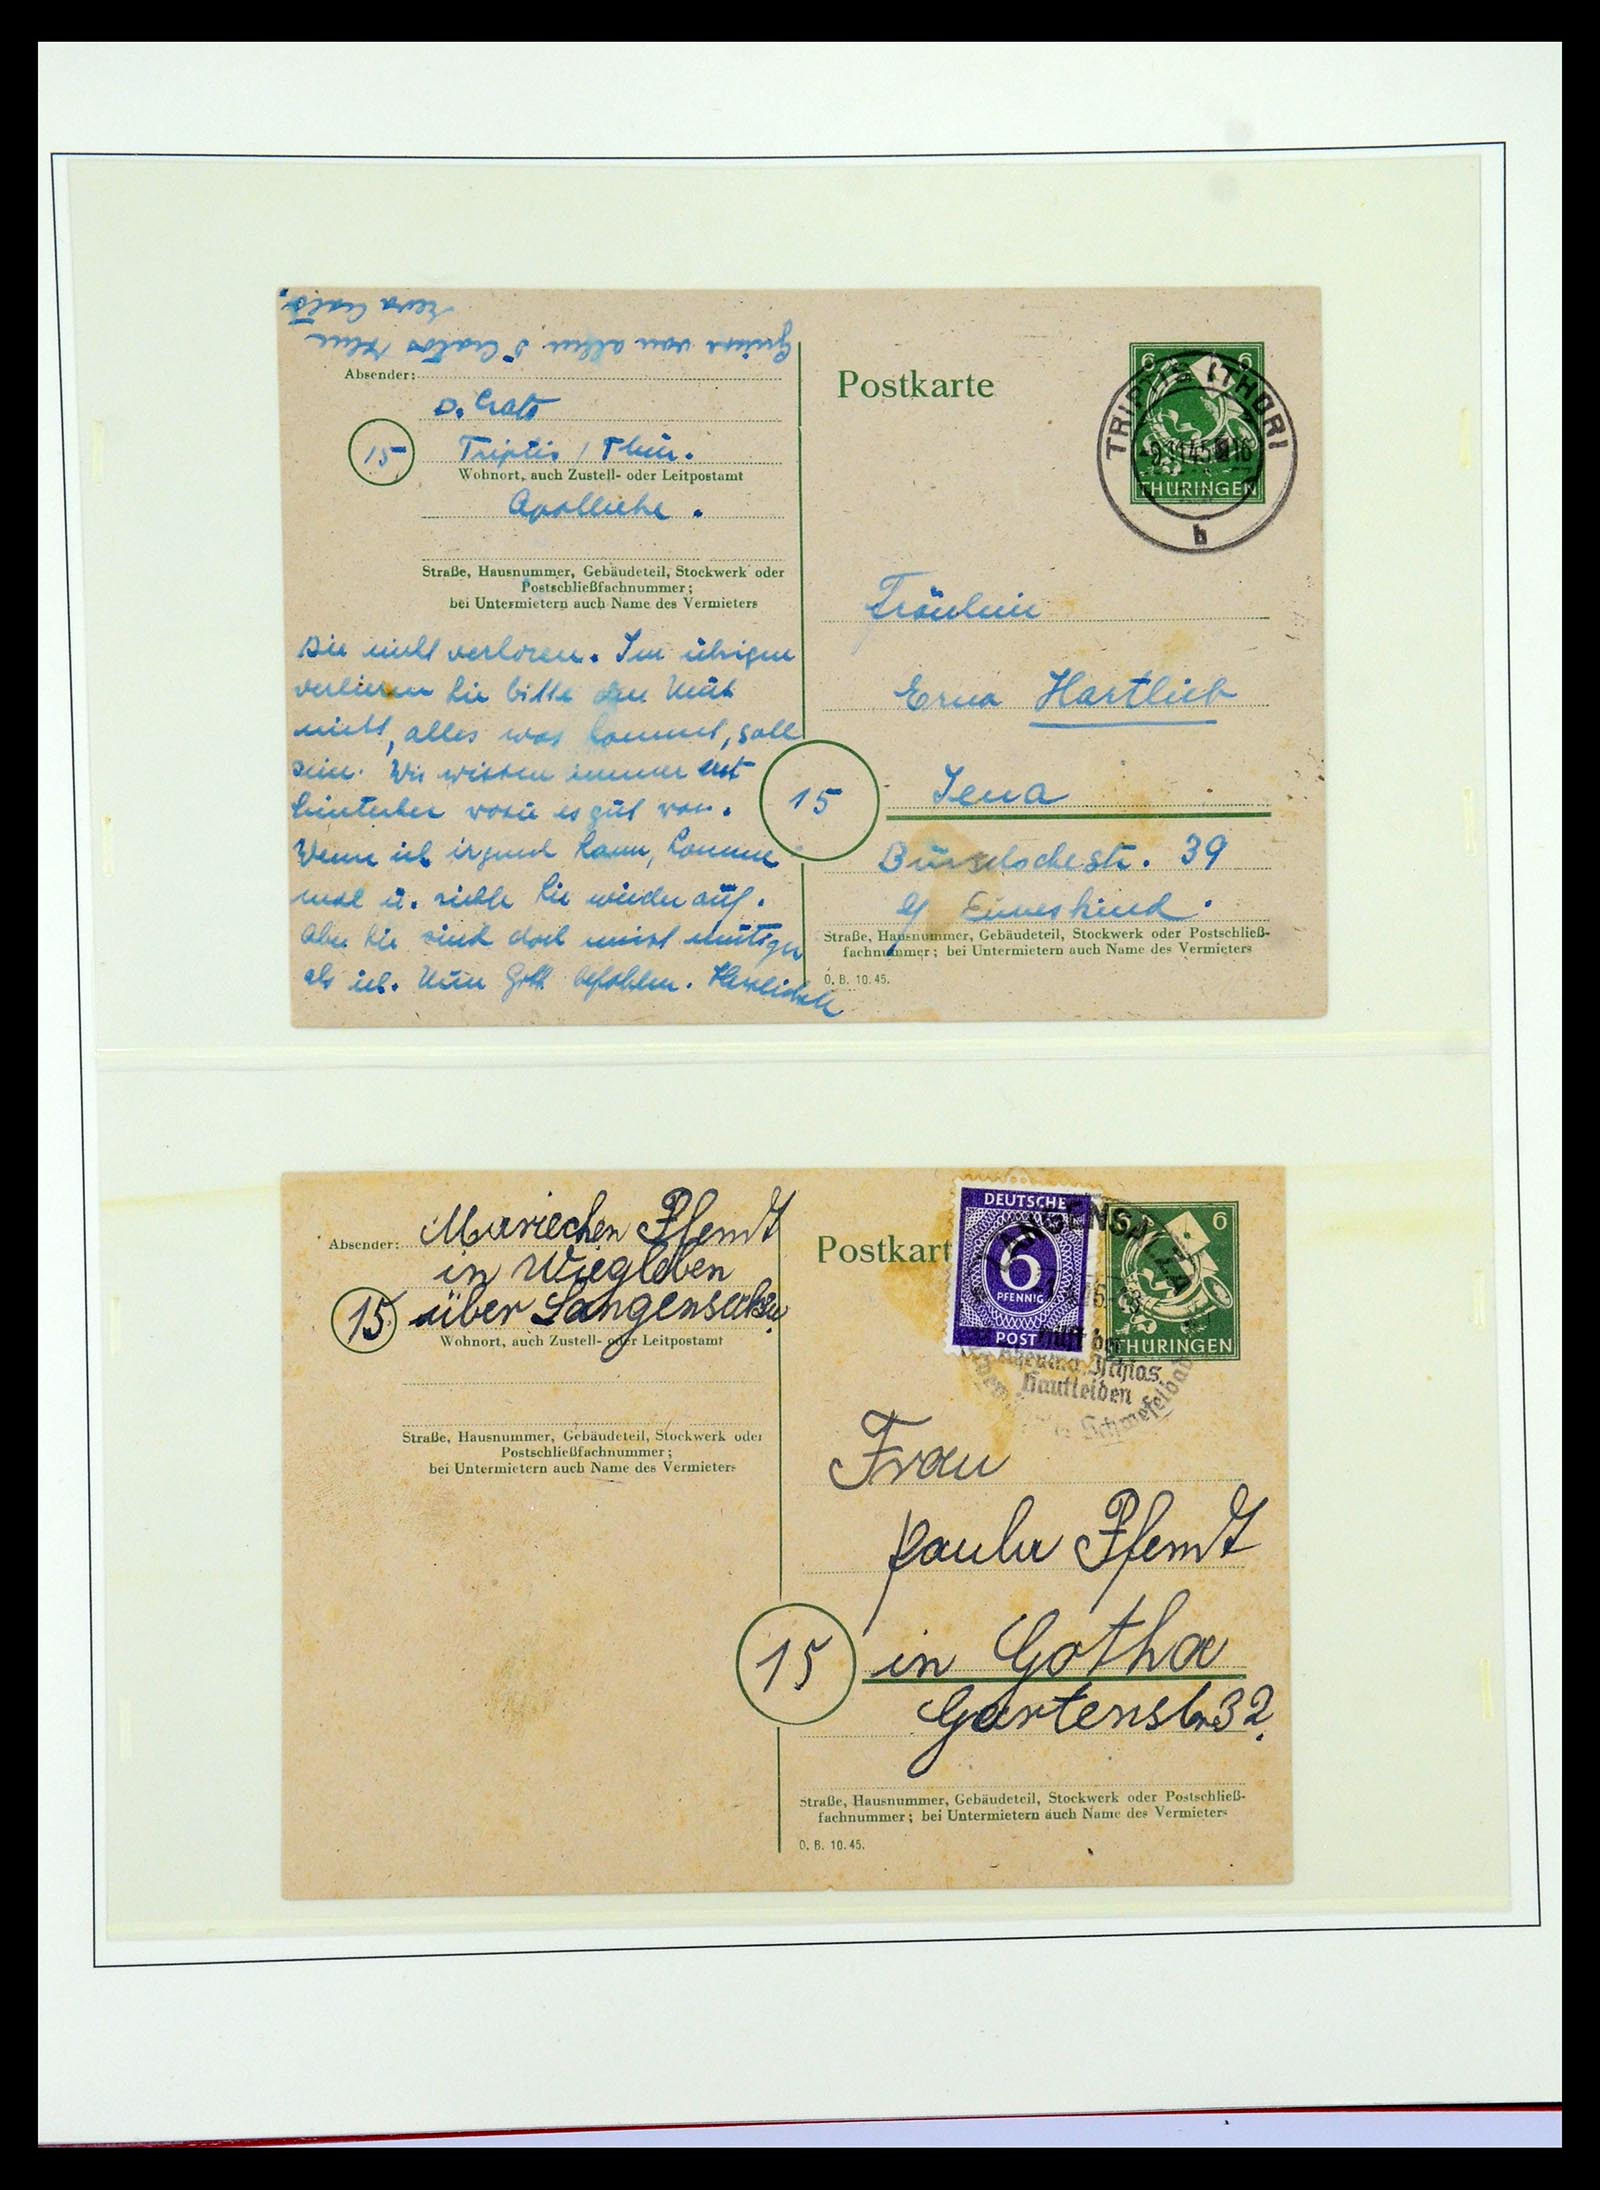 Grüsse von allen
Absender:
D. Crato
15
Triptis / Thür.
Wohnort, auch Zustell- oder Leitpostamt
Straße, Hausnummer, Gebäudeteil, Stockwerk oder
Postschließfachnummer;
bei Untermietern auch Name des Vermieters
Sie nicht verloren. Im übrigen
verlieren Sie bitte den Mut
nicht, alles was kommt, soll
sein. Wir wissen immer erst
hinterher wozu es gut war.
Wenn ich irgend kann, komme
mal u. richte Sie wieder auf.
Aber Sie sind doch meist mutiger
als ich. Nun Gott befohlen. Herzlichste
Postkarte
6 6
THÜRINGEN
TRIPTIS (THÜR)
b
Fräulein
Erna Hartlieb
15
Jena
39
Straße, Hausnummer, Gebäudeteil, Stockwerk oder Postschließ-
fachnummer; bei Untermietern auch Name des Vermieters
O. B. 10. 45.
Absender:
Mariechen Pfendt
in Wiegleben
15
über Langensalza
Wohnort, auch Zustell- oder Leitpostamt
Straße, Hausnummer, Gebäudeteil, Stockwerk oder
Postschließfachnummer;
bei Untermietern auch Name des Vermieters
Postkart
DEUTSCHE
6
PFENNIG
POST
6 6
THÜRINGEN
LANGENSALZA
hilft bei
Rheuma, Ischias,
Hautleiden
Schwefelbad
Frau
Paula Pfendt
15
in Gotha
Gartenstr. 32.
Straße, Hausnummer, Gebäudeteil, Stockwerk oder Postschließ-
fachnummer; bei Untermietern auch Name des Vermieters
O. B. 10. 45.